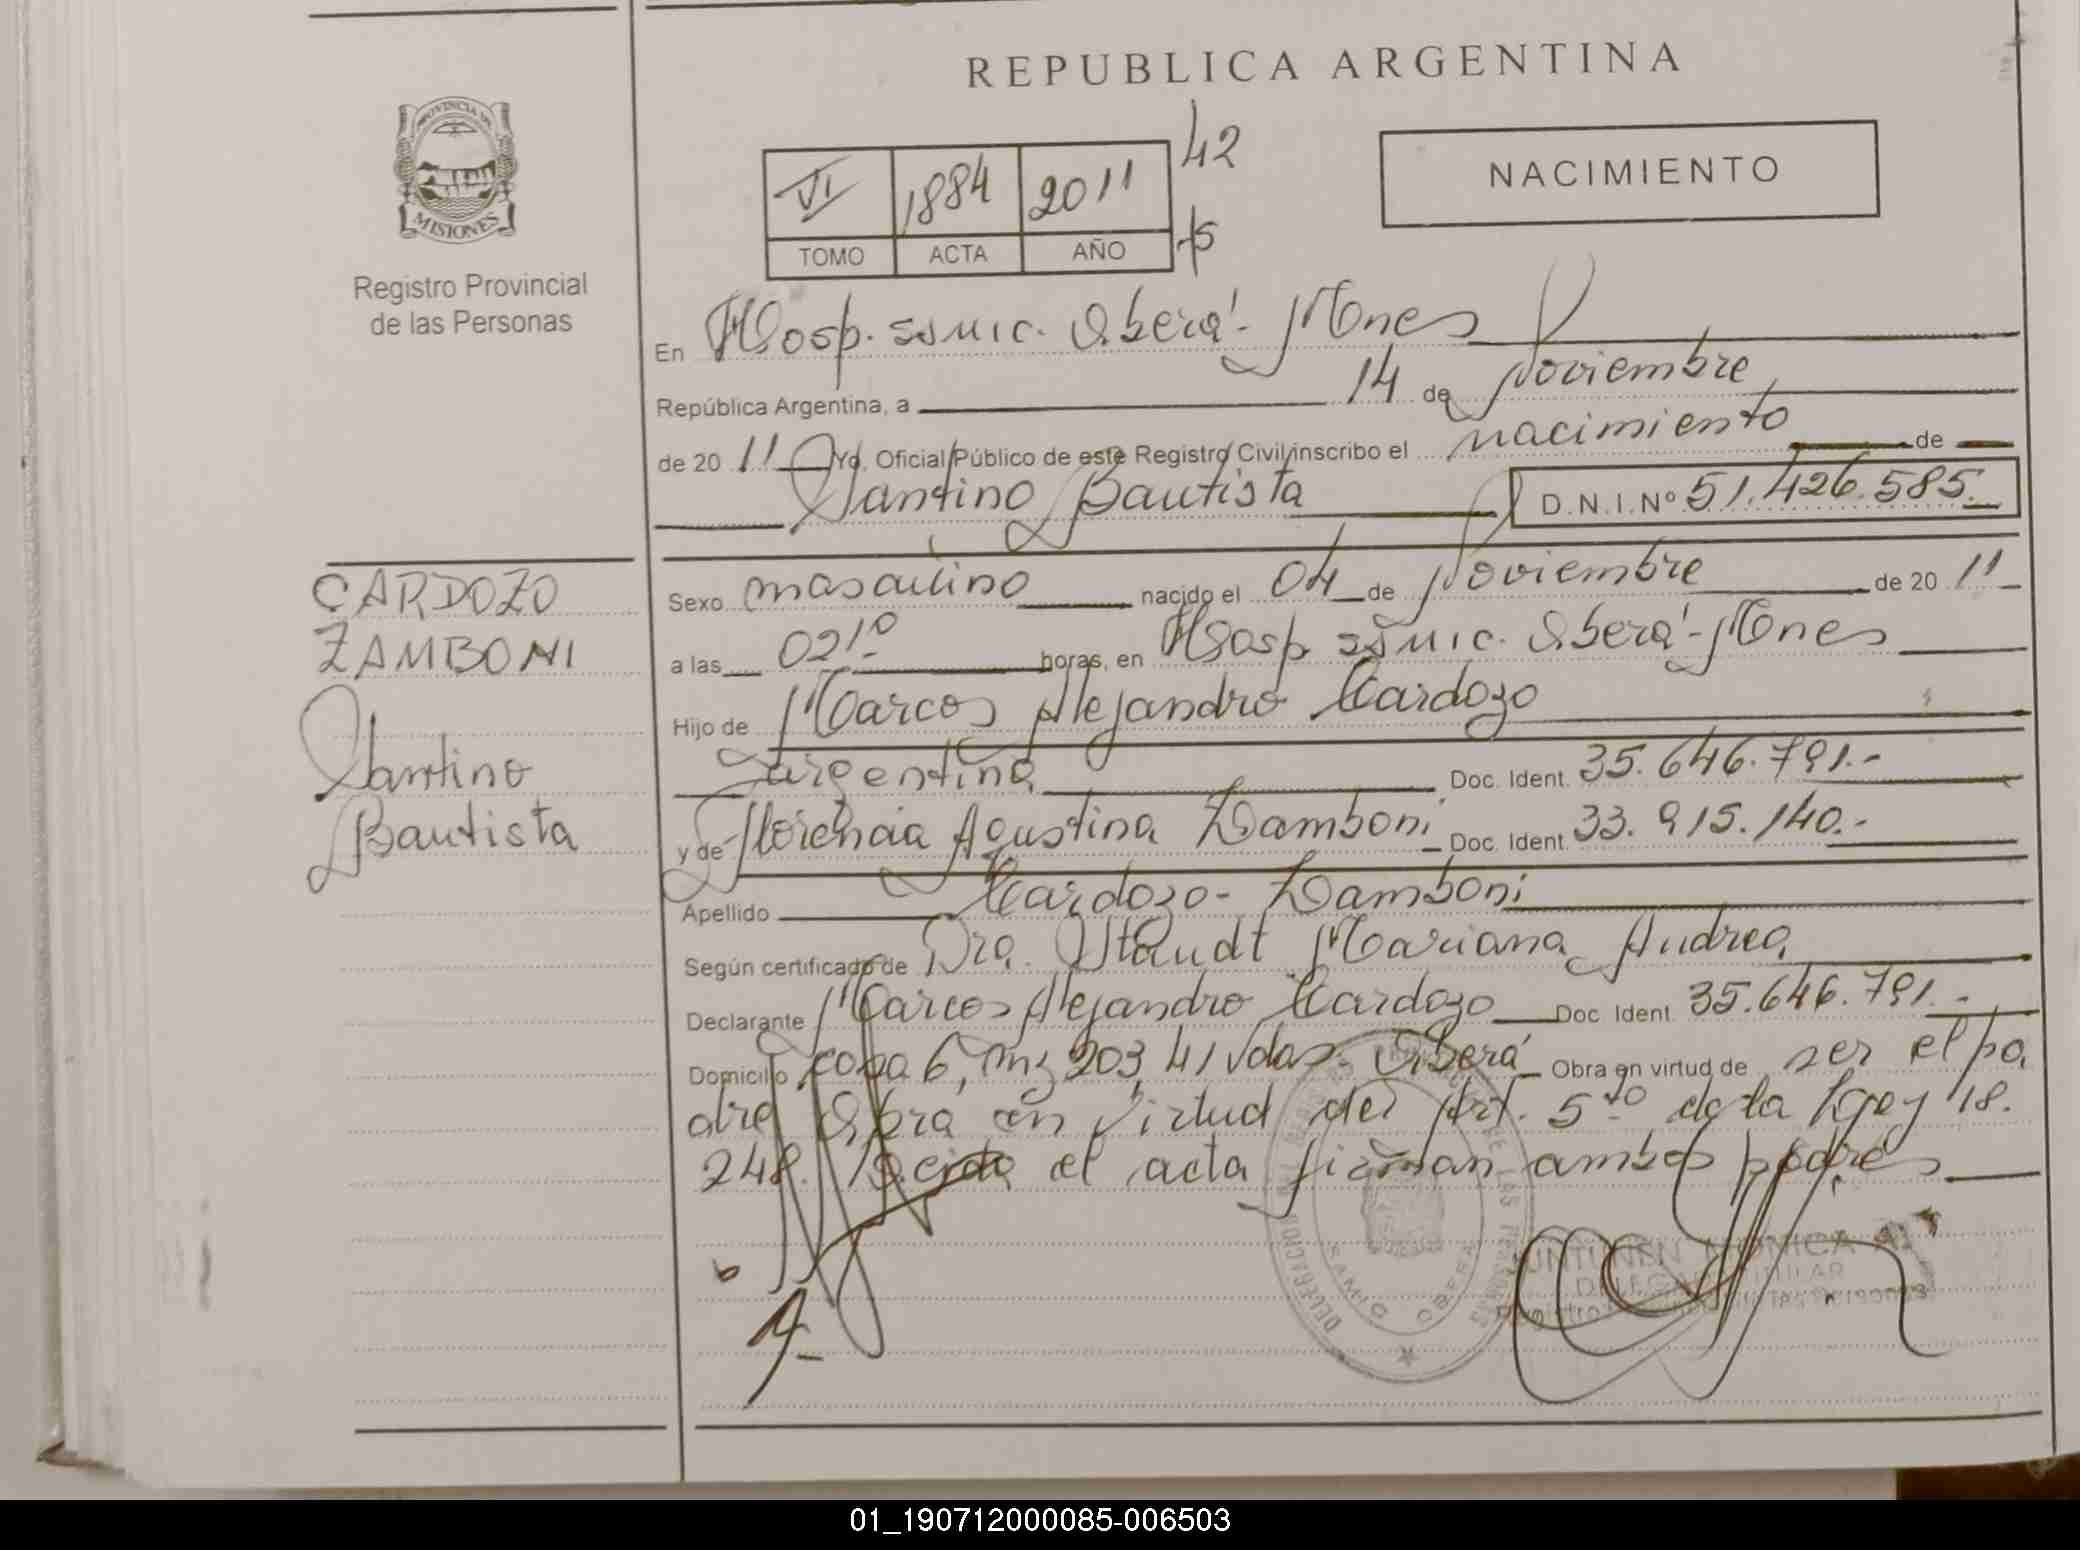 REPUBLICA ARGENTINA
PROVINCIA DE
MISIONES
Registro Provincial
de las Personas
VI 1884 2011 42
TOMO ACTA AÑO
NACIMIENTO
En Hosp. SSMIC. Oberá - Mnes
República Argentina, a 14 de Noviembre
de 2011 Yo, Oficial Público de este Registro Civil inscribo el nacimiento de
Santino Bautista D.N.I.Nº 51.426.585.
CARDOZO
ZAMBONI
Santino
Bautista
Sexo masculino nacido el 04 de Noviembre de 2011
a las 0210 horas, en Hosp. SSMIC. Oberá - Mnes
Hijo de Marcos Alejandro Cardozo
argentina Doc. Ident. 35.646.791.-
y de Florencia Agustina Zamboni Doc. Ident. 33.915.140.-
Apellido Cardozo - Zamboni
Según certificado de Dra. Staudt Mariana Andrea
Declarante Marcos Alejandro Cardozo Doc Ident. 35.646.791.-
Domicilio copa 6, mz 203 41 Vdas. Oberá Obra en virtud de ser el pa
dre Obra en virtud del Art. 5to de la Ley 18.
248. Leída el acta firman ambos padres
DELEGACION
OBERA
MONICA
01_190712000085-006503